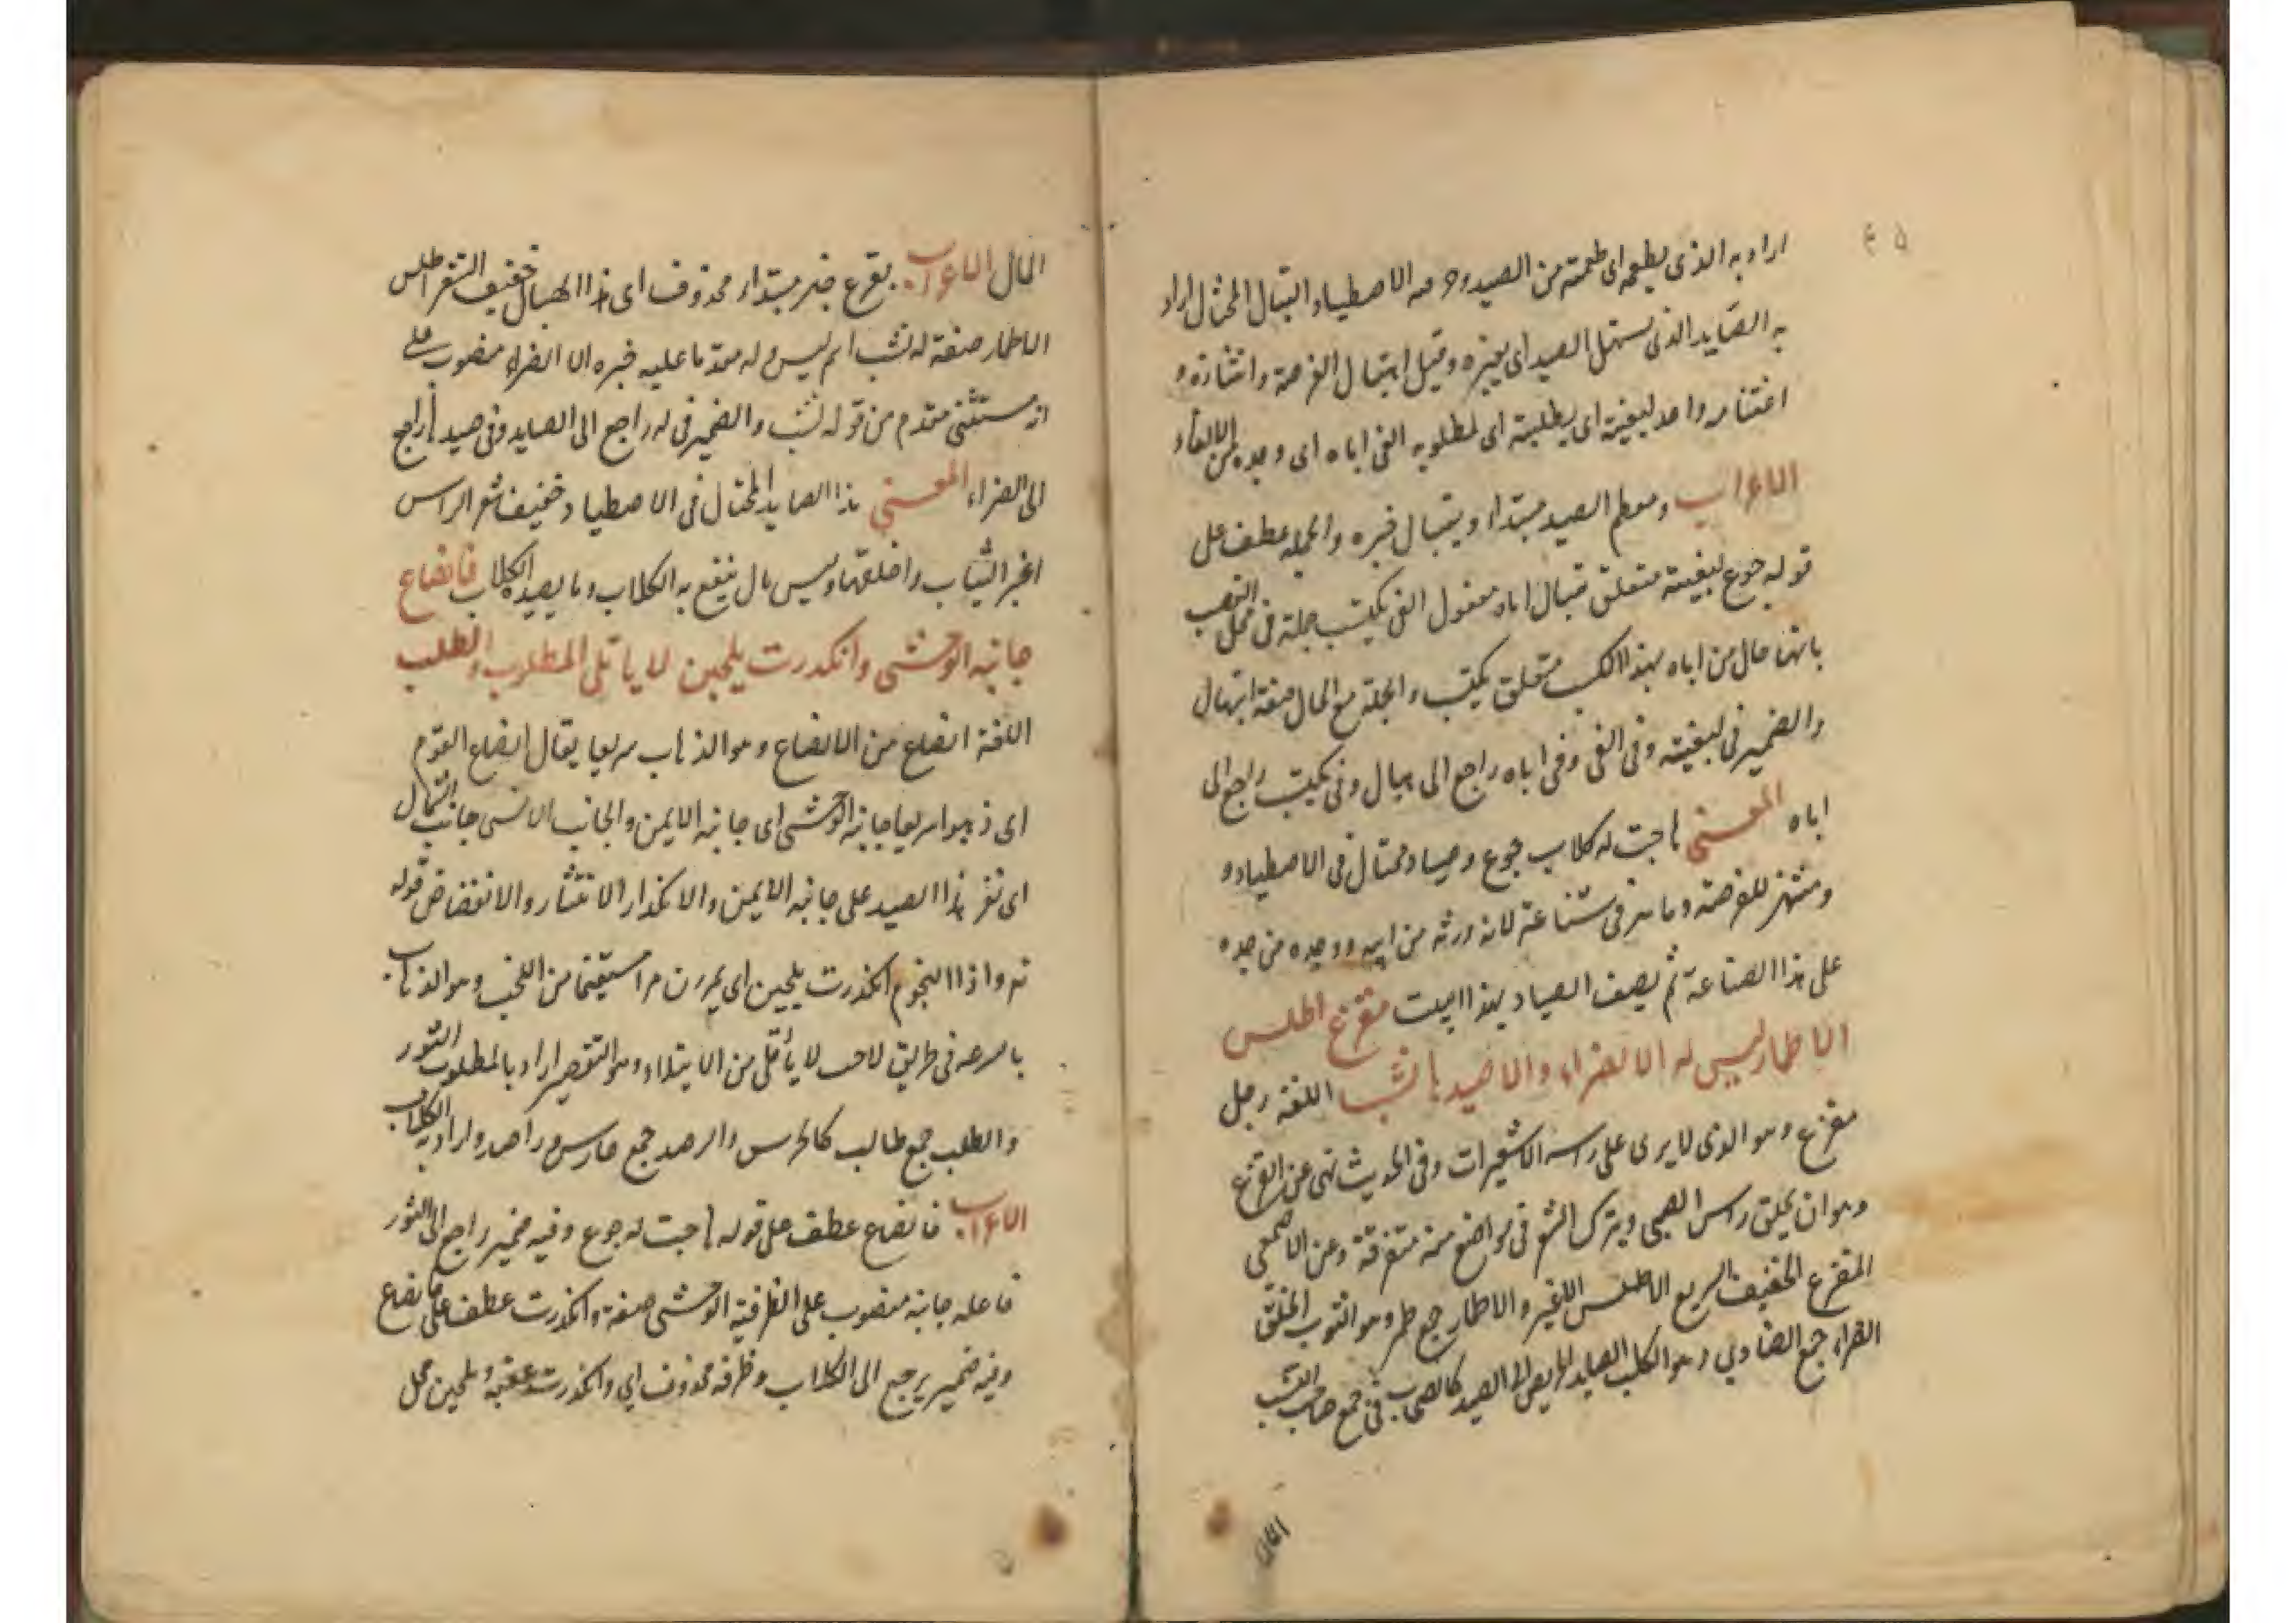 اراد به الذى يطعمه اى طعمته من الصيد وحرفه الاصطياد الهتبال المحتال اراد
به الصايد الذى يستهبل الصيد اى يغتره وقيل اهتبال الفرصة وانتهازه و
اغتنامه واحد لبغيته اى لطلبته اى لمطلوبه الفى اباه اى وجده من الالفاء
الاعراب ومطعم الصيد مبتداء وهبال خبره والجملة عطف على
قوله جوع لبغيته متعلق بهبال اباه مفعول الفى يكتسب جملة فى محل النصب
بانها حال من اباه بهذا الكسب متعلق يكتسب والجملة مع الحال صفة لهبال
والضمير فى لبغيته وفى الفى وفى اباه راجع الى هبال وفى يكتسب راجع الى
اباه المعنى هاجت له كلاب جوع وصياد محتال فى الاصطياد و
ومنتهز للفرصة وماهر فى صناعته لانه ورثه من ابيه ووجده من جده
على هذا الصناعة ثم يصف الصياد بهذا البيت مقزع اطلس
الاطمار ليس له الا الضراء والا صيدها نشب اللغة رجل
مقزع وهو الذى لا يرى على راسه الا شعيرات وفى الحديث نهى عن القزع
وهو ان يحلق راس الصبى ويترك الشعر فى مواضع منه متفرقة وعن الاصمعى
المقزع الخفيف السريع الاطلس الاغبر والاطمار جمع طمر وهو الثوب الخلق
الضراء جمع الضاري وهو الكلب الصايد الحريص الى الصيد كالصحاب فى جمع صاحب النشب
المال
المال الاعراب مقزع خبر مبتداء محذوف اى هذا الهبال خفيف الشعر اطلس
الاطمار صفة له نشب اسم ليس وله مقدما عليه خبره الا الضراء منصوب على
انه مستثنى مقدم من قوله نشب والضمير فى له راجع الى الصايد وفى صيدها راجع
الى الضراء المعنى هذا الصايد المحتال فى الاصطياد خفيف شعر الراس
اغبر الثياب واخلقها وليس مال ينتفع به الا الكلاب وما يصيده الكلاب فانصاع
جانبه الوحشى وانكدرت يلحبن لا ياتلى المطلوب والطلب
اللغة انصاع من الانصاع وهو الذهاب سريعا يقال انصاع القوم
اى ذهبوا سريعا جانبه الوحشى اى جانبه الايمن والجانب الانسى جانب الشمال
اى نفر هذا الصيد على جانبه الايمن والانكدار الانتثار والانقضاض قوله
تع واذا النجوم انكدرت يلحبن اى يمررن مرا مستقيما من اللحب وهو الذهاب
بالسرعه فى طريق لاحب لا يأتلى من الايتلاء وهو التقصير اراد بالمطلوب الثور
والطلب جمع طالب كالحرس والرصد جمع حارس وراصد واراد به الكلاب
الاعراب فانصاع عطف على قوله هاجت له جوع وفيه ضمير راجع الى الثور
فاعله جانبه منصوب على الظرفية الوحشى صفته وانكدرت عطف على فانصاع
وفيه ضمير يرجع الى الكلاب وظرفه محذوف اي وانكدرت عقبه ويلحبن محل